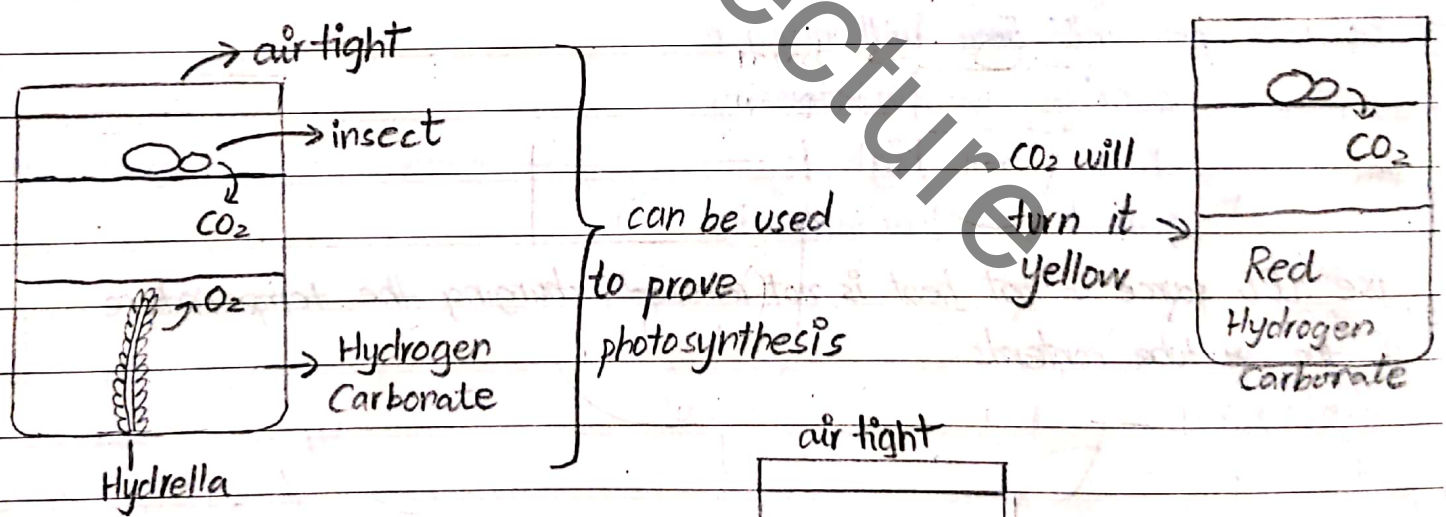 air tight
insect
CO₂
O₂
Hydrogen
Carbonate
Hydrella
can be used
to prove
photosynthesis
ecture
CO₂ will
turn it
yellow
CO₂
Red
Hydrogen
Carbonate
air tight